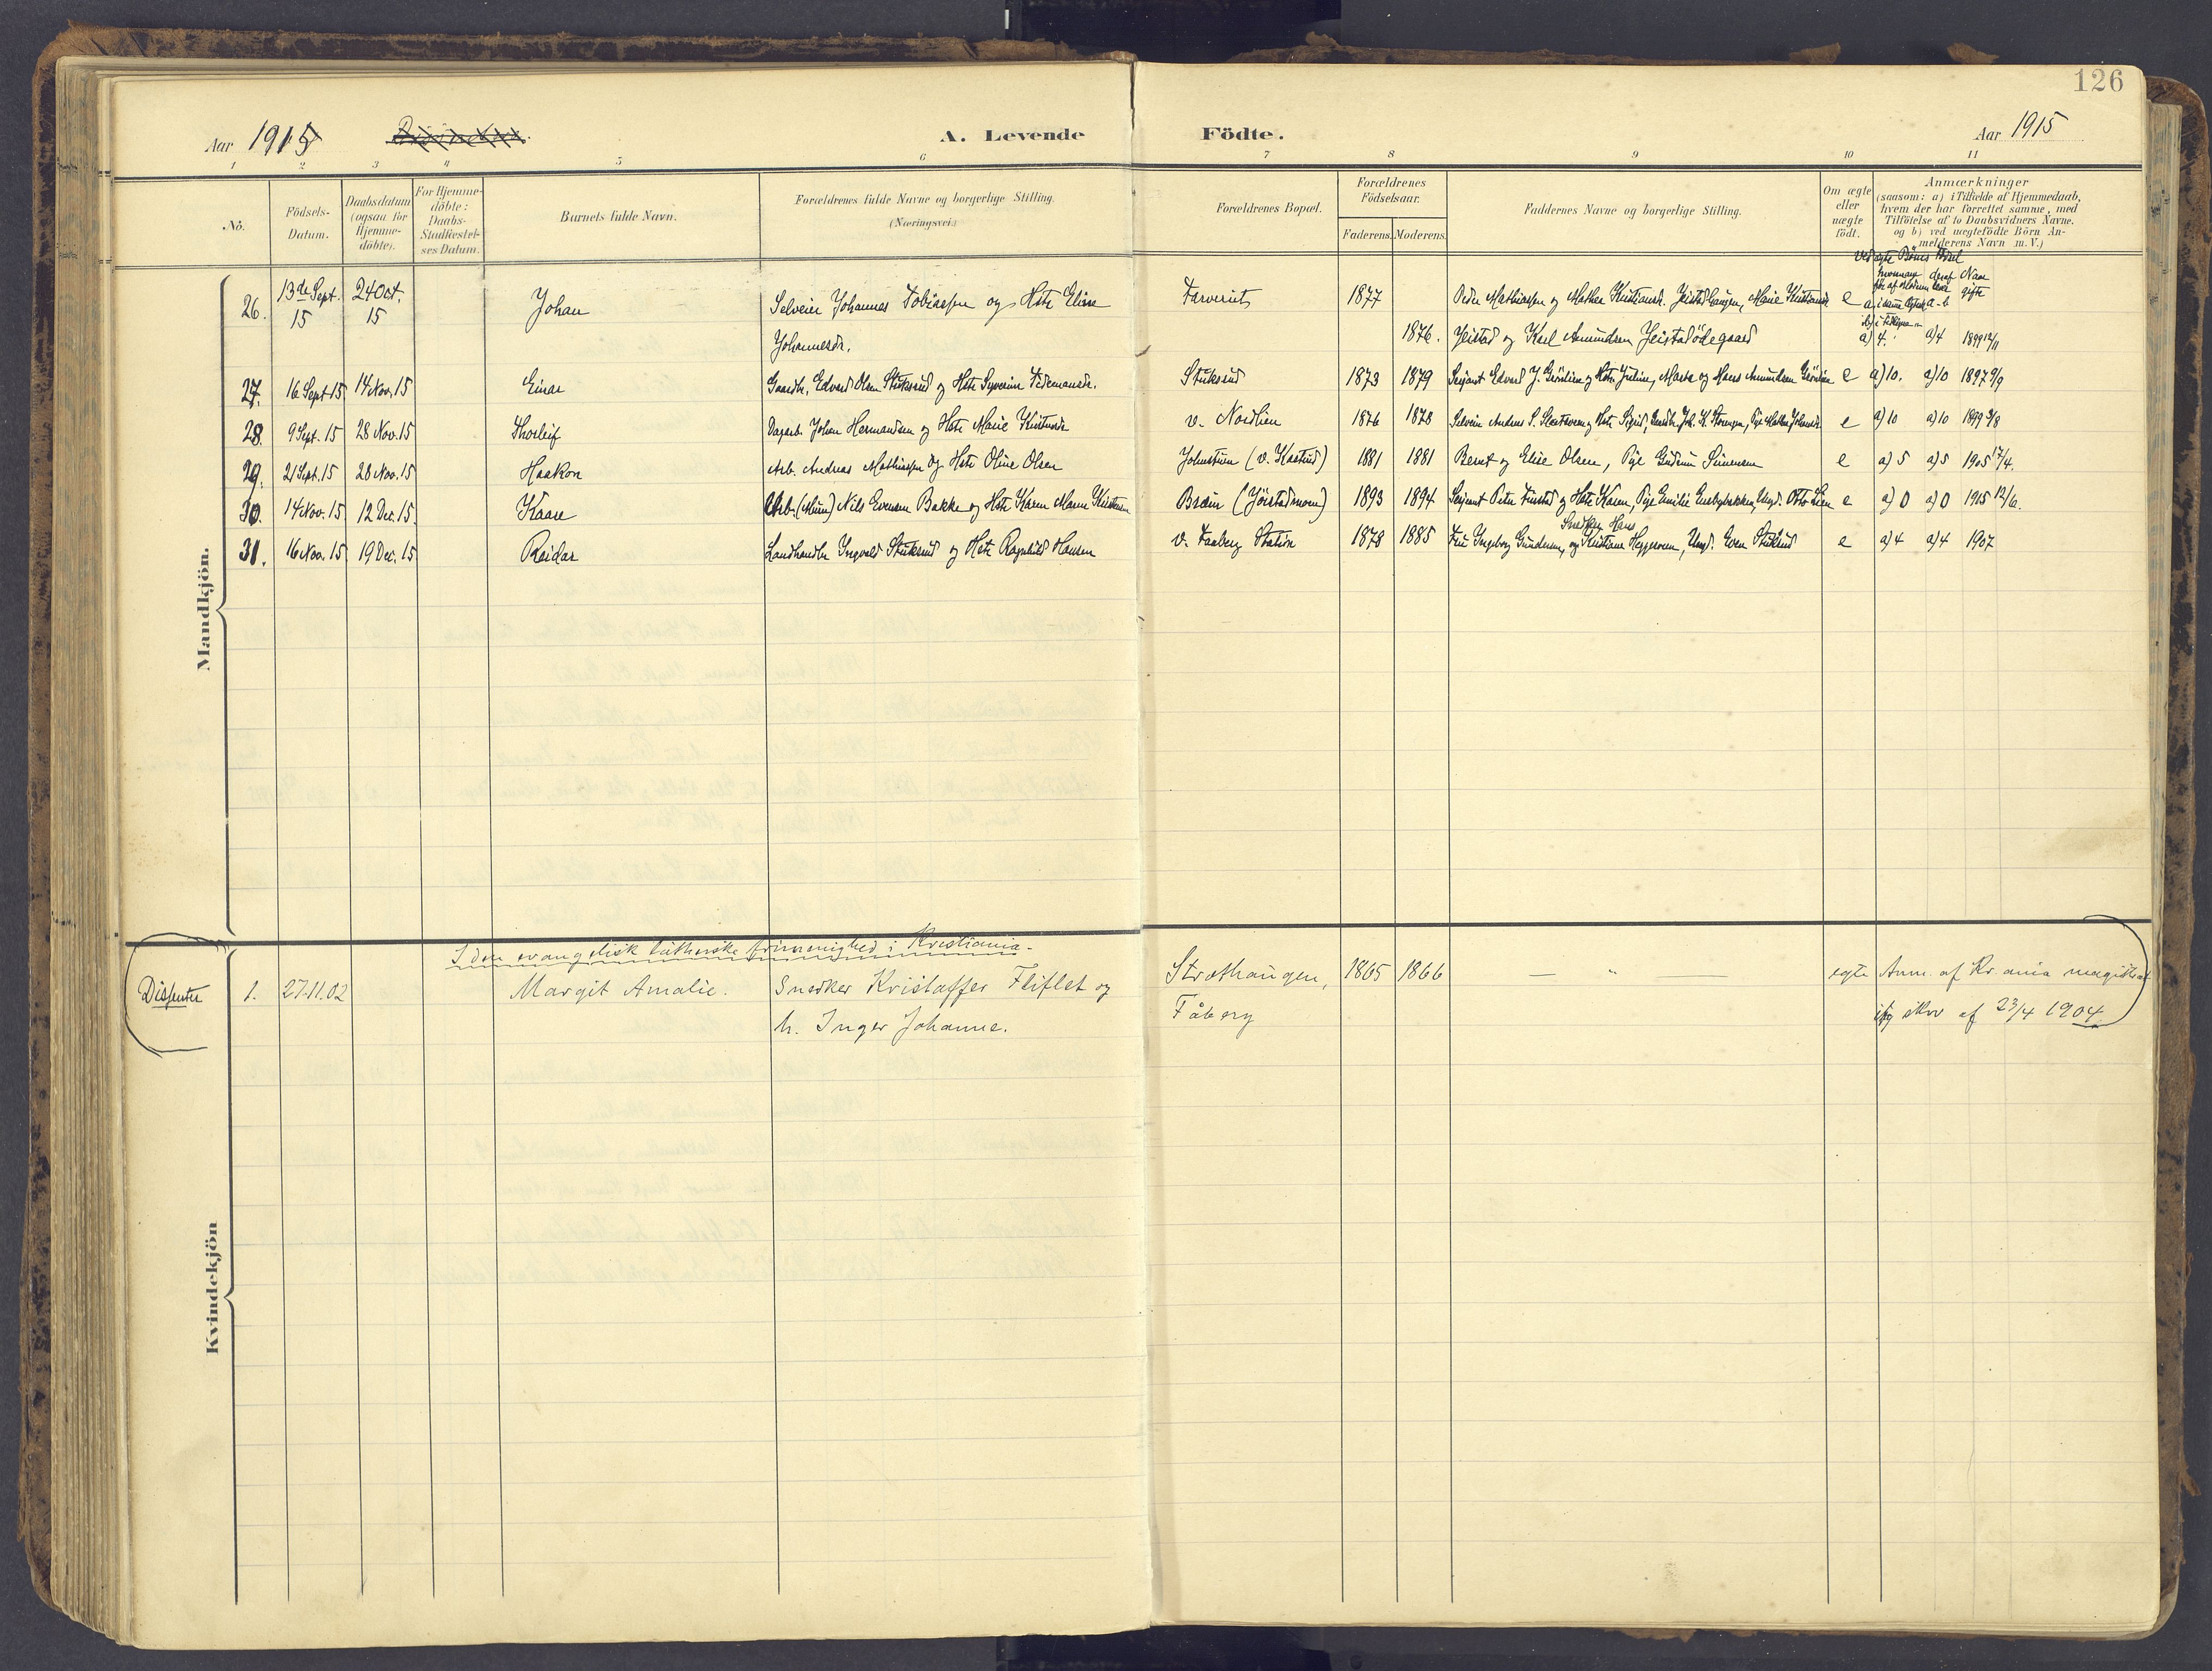 126
Aar 1915
A. Levende
Födte.
Aar 1915
1 2 3 4 5 6 7 8 9 10 11
No.
Födsels-
Datum.
Daabsdatum
(ogsaa for
Hjemme-
döbte).
For Hjemme-
döbte:
Daabs-
Stadfæstel-
ses Datum.
Barnets fulde Navn.
Forældrenes fulde Navne og borgerlige Stilling.
(Næringsvei.)
Forældrenes Bopæl.
Forældrenes
Födselsaar.
Faderens. Moderens.
Faddernes Navne og borgerlige Stilling.
Om ægte
eller
uægte
födt.
Anmærkninger
(saasom: a) i Tilfælde af Hjemmedaab,
hvem der har forrettet samme, med
Tilföielse af to Daabsvidners Navne,
og b) ved uægtefödte Börn An-
melderens Navn m. V.)
Mandkjön.
26. 13de Sept. 15 24 Oct. 15 Johan Selveier Johannes Tobiassen og Hstr Eline 1877 Peder Mathiassen og Mathea Kristiansd. Jeistadhaugen, Marie Kristiansd. e
Johannesdr. 1876. Jeistad og Karl Amundsen Jeistadödegaard a) 4. a) 4 1899 12/11
27. 16 Sept 15 14 Nov. 15 Einar Gaardbr. Edvard Olsen Stuksrud og Hstr Syverine Tidemansdr. Stuksrud 1873 1879 Sersjant Edvard J. og Hstr Juline, Marta og Hans Amundsen e a) 10. a) 10 1897 9/9
28. 9 Sept. 15 28 Nov. 15 Thorleif Dagarb. Johan Hermandsen og Hstr Marie v. Nordlien 1876 1878 Selveier Andreas S. og Hstr Sigrid, e a) 10 a) 10 1899
29. 21 Sept. 15 28 Nov. 15 Haakon Arb. Andreas Mathiassen og Hstr Oline Olsen Johnstuen (v. Kastrud) 1881 1881 Bernt og Elise Olsen, Pige Gudrun Simensen e a) 5 a) 5 1905 17/4.
30. 14 Nov. 15 12 Dec. 15 Kaare Arb. (Mur) Nils Evensen Bakke og Hstr Karen Marie Bræin (Jörstadmoen) 1893 1894 Sersjant Peter og Hstr Karen, Pige Emilie Ungk. Otto Lien e a) 0 a) 0 1915 12/6.
31. 16 Nov. 15 19 Dec. 15 Reidar Landhandler Ingvald Stuksrud og Hstr Ragnhild Hansen v. Faaberg Station 1878 1885 Fru Ingeborg Gundersen, Snedker Hans og Kristiane Heggerveen, Ungk. Even Stuksrud e a) 4 a) 4 1907
I den evangelisk lutherske frimenighed i Kristiania.
Dissenter 1. 27.11.02 Margit Amalie. Snedker Kristoffer Fliflet og Stræthaugen, 1865 1866 — „ — egte Anm. af Kr.ania magistrat
h. Inger Johanne. Fåberg ifg skr af 23/4 1904
Kvindekjön